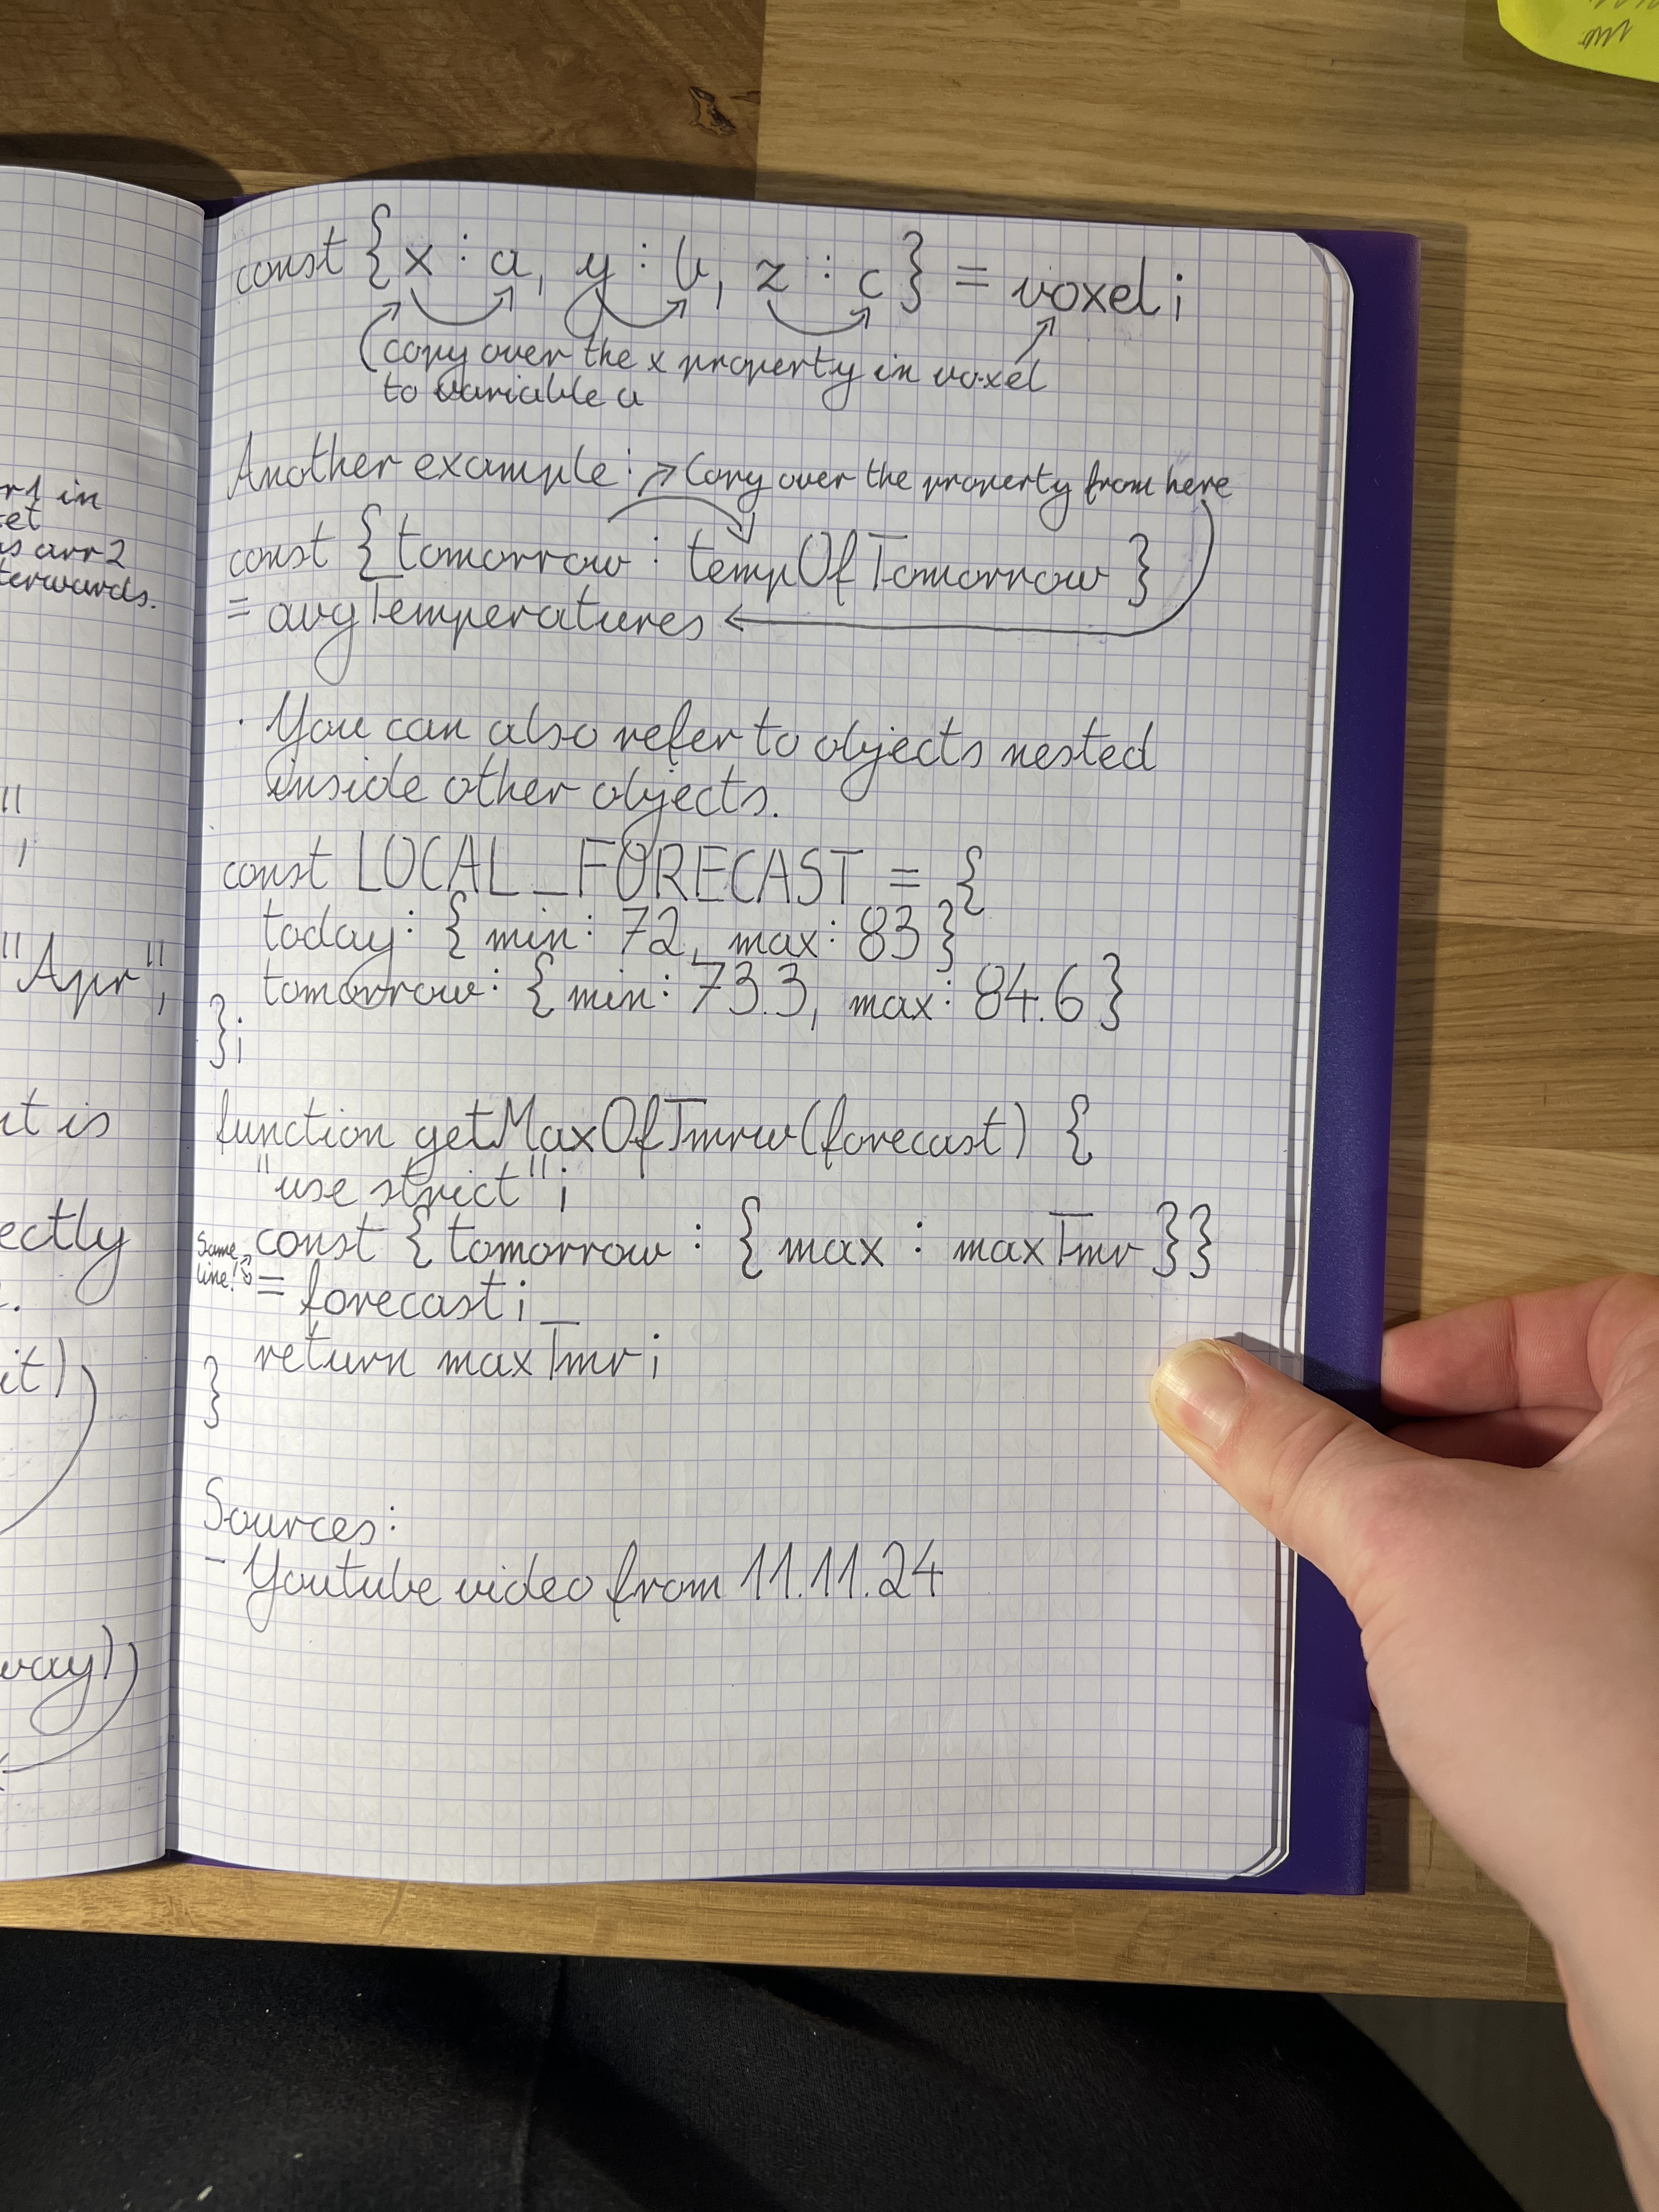 r1 in
et
s arr2
terwards.
"
;
"Apr";
t is
ectly
.
it)
way)
const {x : a, y : b, z : c} = voxel;
copy over the x property in voxel
to variable a
Another example: Copy over the property from here
const {tomorrow : tempOfTomorrow }
= avgTemperatures
· You can also refer to objects nested
inside other objects.
const LOCAL_FORECAST = {
today: { min: 72, max: 83 }
tomorrow: { min: 73.3, max: 84.6 }
};
function getMaxOfTmrw(forecast) {
"use strict";
const { tomorrow : { max : maxTmr }}
Same
line!
= forecast;
return maxTmr;
}
Sources:
- Youtube video from 11.11.24